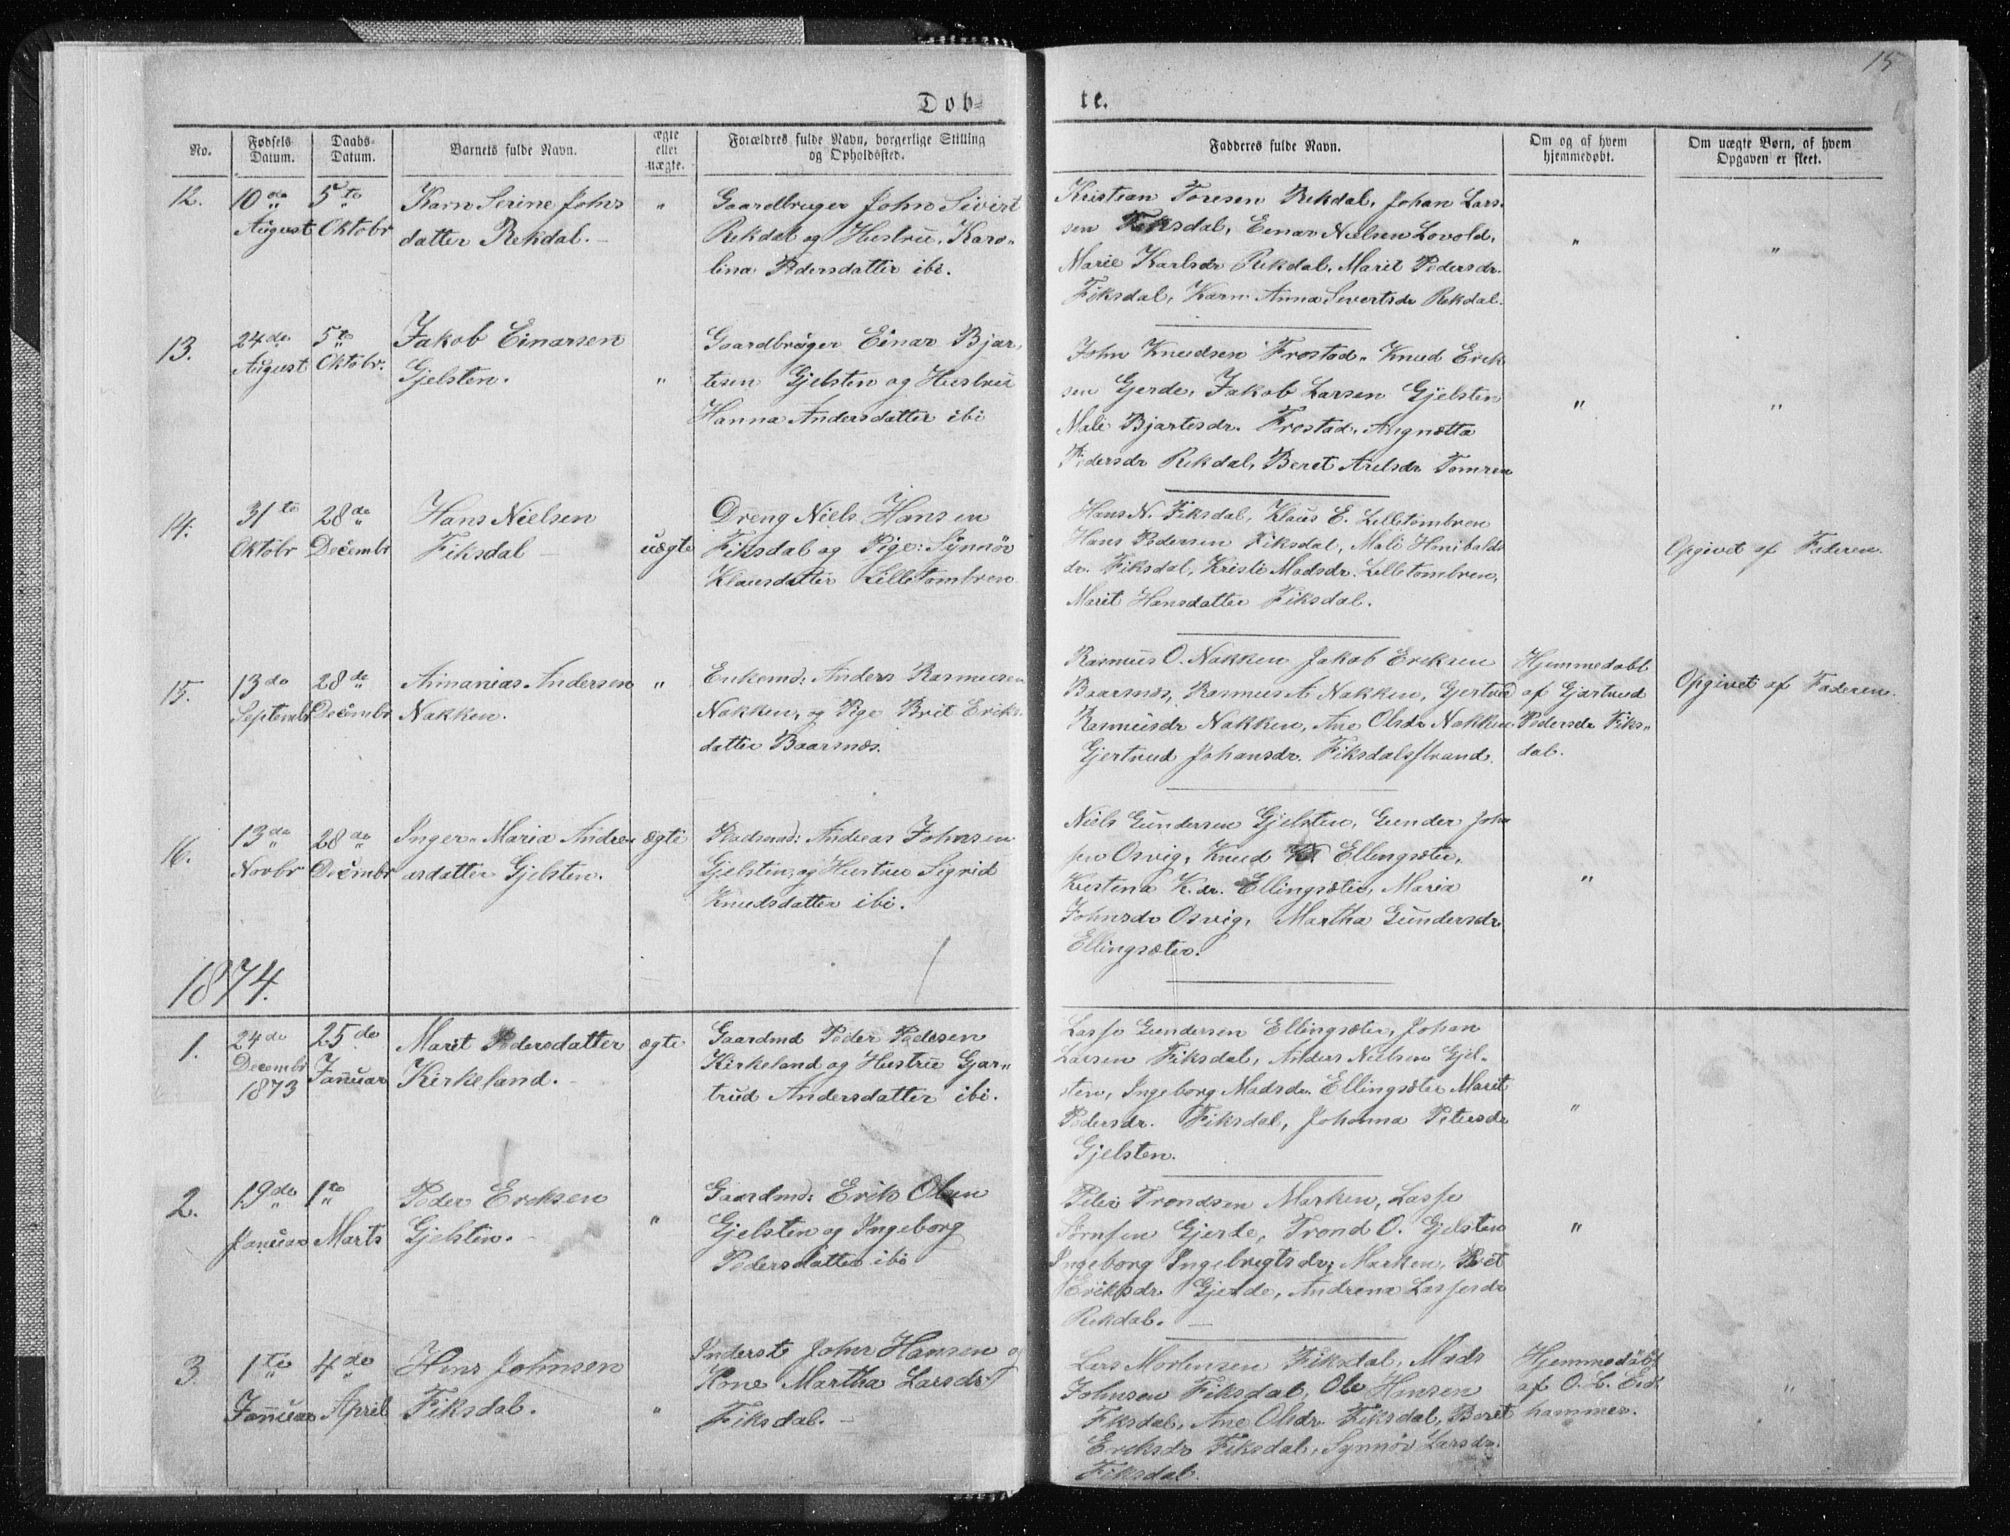 15
Døb-
te.
No.
Fødsels Datum.
Daabs-Datum.
Barnets fulde Navn.
ægte eller uægte.
Forældres fulde Navn, borgerlige Stilling og Opholdssted.
Fadderes fulde Navn.
Om og af hvem hjemmedøbt.
Om uægte Børn, af hvem Opgaven er skeet.
12.
10de August
5te Oktobr
Karn Serine Johns
datter Rekdal.
"
Gaardbruger John Sivert
Rekdal og Hustru, Karo-
lina Pedersdatter ibi.
Kristian Toresen Rekdal, Johan Lars-
sen Fiksdal, Einar Nielsen Lovold,
Marie Karlsdr Rekdal, Marit Pedersdr.
Fiksdal, Karn Anna Sivertsdr Rekdal.
"
"
13.
24de August
5te Oktobr.
Jakob Einarsen
Gjelsten.
"
Gaardbruger Einar Bjar
tesen Gjelsten og Hustru
Hanna Andersdatter ibi
John Knudsen Frostad. Knud Erik
sen Gjerde, Jakob Larsen Gjelsten
Mali Bjartesdr. Frostad. Angnetta
Pedersdr Rekdal, Beret Axelsdr Tomren
"
"
14.
31te Oktobr
28de Decembr
Hans Nielsen
Fiksdal
uægte
Dreng Niels Hansen
Fiksdal og Pige: Synnøv
Klausdatter Lilletombren
Hans N. Fiksdal, Klaus E. Lilletombren
Hans Pedersen Fiksdal, Mali Hanibalds
dr. Fiksdal, Kristi Madsdr. Lilletombren,
Marit Hansdatter Fiksdal.
Opgivet af Faderen.
15.
13de Septembr
28de Decembr
Annanias Andersen
Nakken.
"
Enkemd: Anders Rasmusen
Nakken, og Pige Brit Eriks
datter Baarsnæs.
Rasmus O. Nakken Jakob Eriksen
Baarsnæs, Rasmus A. Nakken, Gjertrud
Rasmusdr Nakken, Ane Olsdr Nakken
Gjertrud Johansdr. Fiksdalsstrand.
Hjemmedøbt
af Gjartrud
Pedersdr Fiks-
dal.
Opgivet af Faderen.
16.
13de Novbr
28de Decembr
Inger-Maria Andre
asdatter Gjelsten.
ægte
Pladsmd: Andreas Johnsen
Gjelsten, og Hustru Sigrid
Knudsdatter ibi.
Niels Gundersen Gjelsten, Gunder John
sen Osvig, Knud Ellingsæter,
Kristena K.dr. Ellingsæter, Maria
Johnsdr Osvig, Martha Gundersdr
Ellingsæter.
"
1874.
1.
24de Decembr 1873
25de Januar
Marit Pedersdatter
Kirkeland.
ægte
Gaardmd Peder Pedesen
Kirkeland og Hustru Gjar-
trud Andersdatter ibi.
Lasse Gundersen Ellingsæter, Johan
Larsen Fiksdal, Anders Nielsen Gjel-
sten, Ingeborg Madsdr. Ellingsæter Marit
Pedersdr. Fiksdal, Johanna Petersdr
Gjelsten.
"
2.
19de Januar
1te Marts
Peder Eriksen
Gjelsten.
"
Gaardmd: Erik Olsen
Gjelsten og Ingeborg
Pedersdatter ibi
Peter Trondsen Marken, Lasse
Gjerde, Trond O. Gjelsten
Ingeborg Ingebrigtsdr, Marken, Brit
Eriksdr Gjerde, Andrena Lassesdr
Rekdal.
"
3
1te Januar
4de April
Hans Johnsen
Fiksdal.
"
Inderst John Hansen og
Kone Martha Larsdr
Fiksdal.
Lars Mortensen Fiksdal, Mads
Johnsen Fiksdal, Ole Hansen
Fiksdal, Ane Olsdr Fiksdal, Beret
Eriksdr Fiksdal, Synnøv Larsdr.
Fiksdal
Hjemmedøbt
af O. L. Eid
hammer.
"